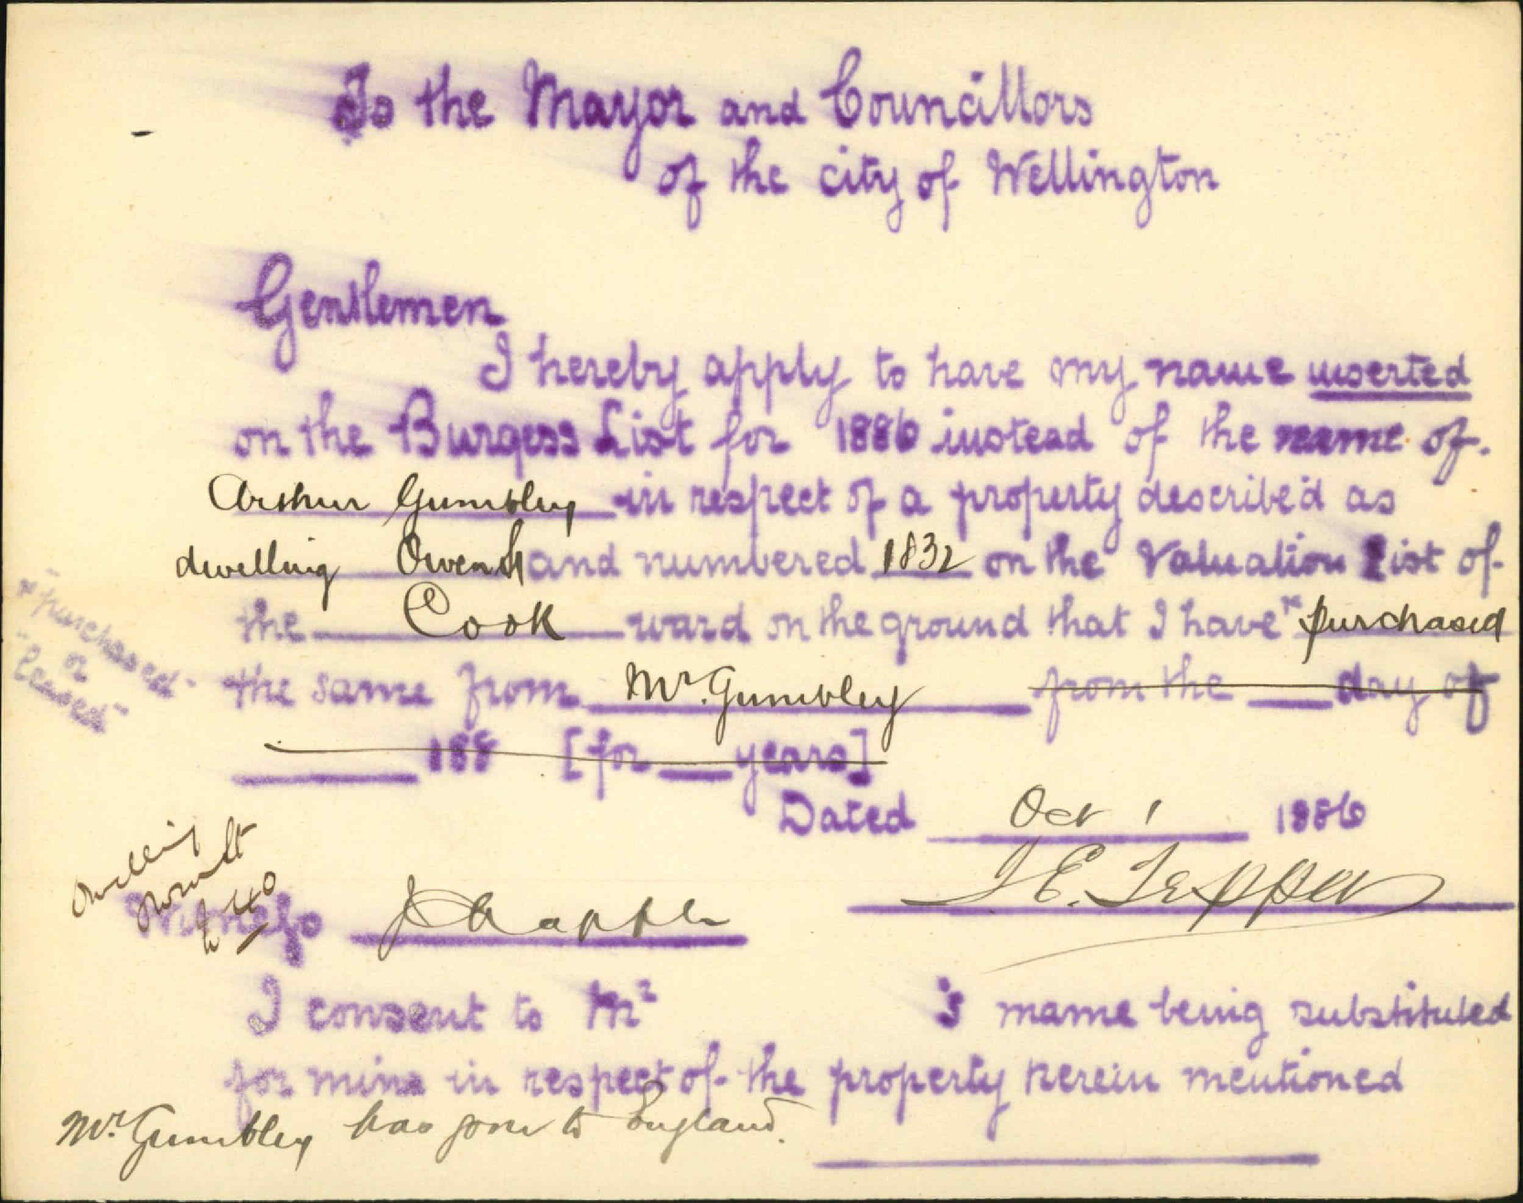 To the Mayor and Councillors
of the city of Wellington
Gentlemen
I hereby apply to have my name inserted
on the Burgess List for 1886 instead of the name of
Arthur Gumbley in respect of a property described as
dwelling Owen St and numbered 1832 on the Valuation List of
the Cook ward on the ground that I have x purchased
x "purchased"
or
"leased"
the same from Mr. Gumbley from the day of
188 [for years]
Dated Oct 1 1886
Dwelling
£40
J E. Tepper
Witness
I consent to Mr 's name being substituted
for mine in respect of the property herein mentioned
Mr. Gumbley has gone to England.